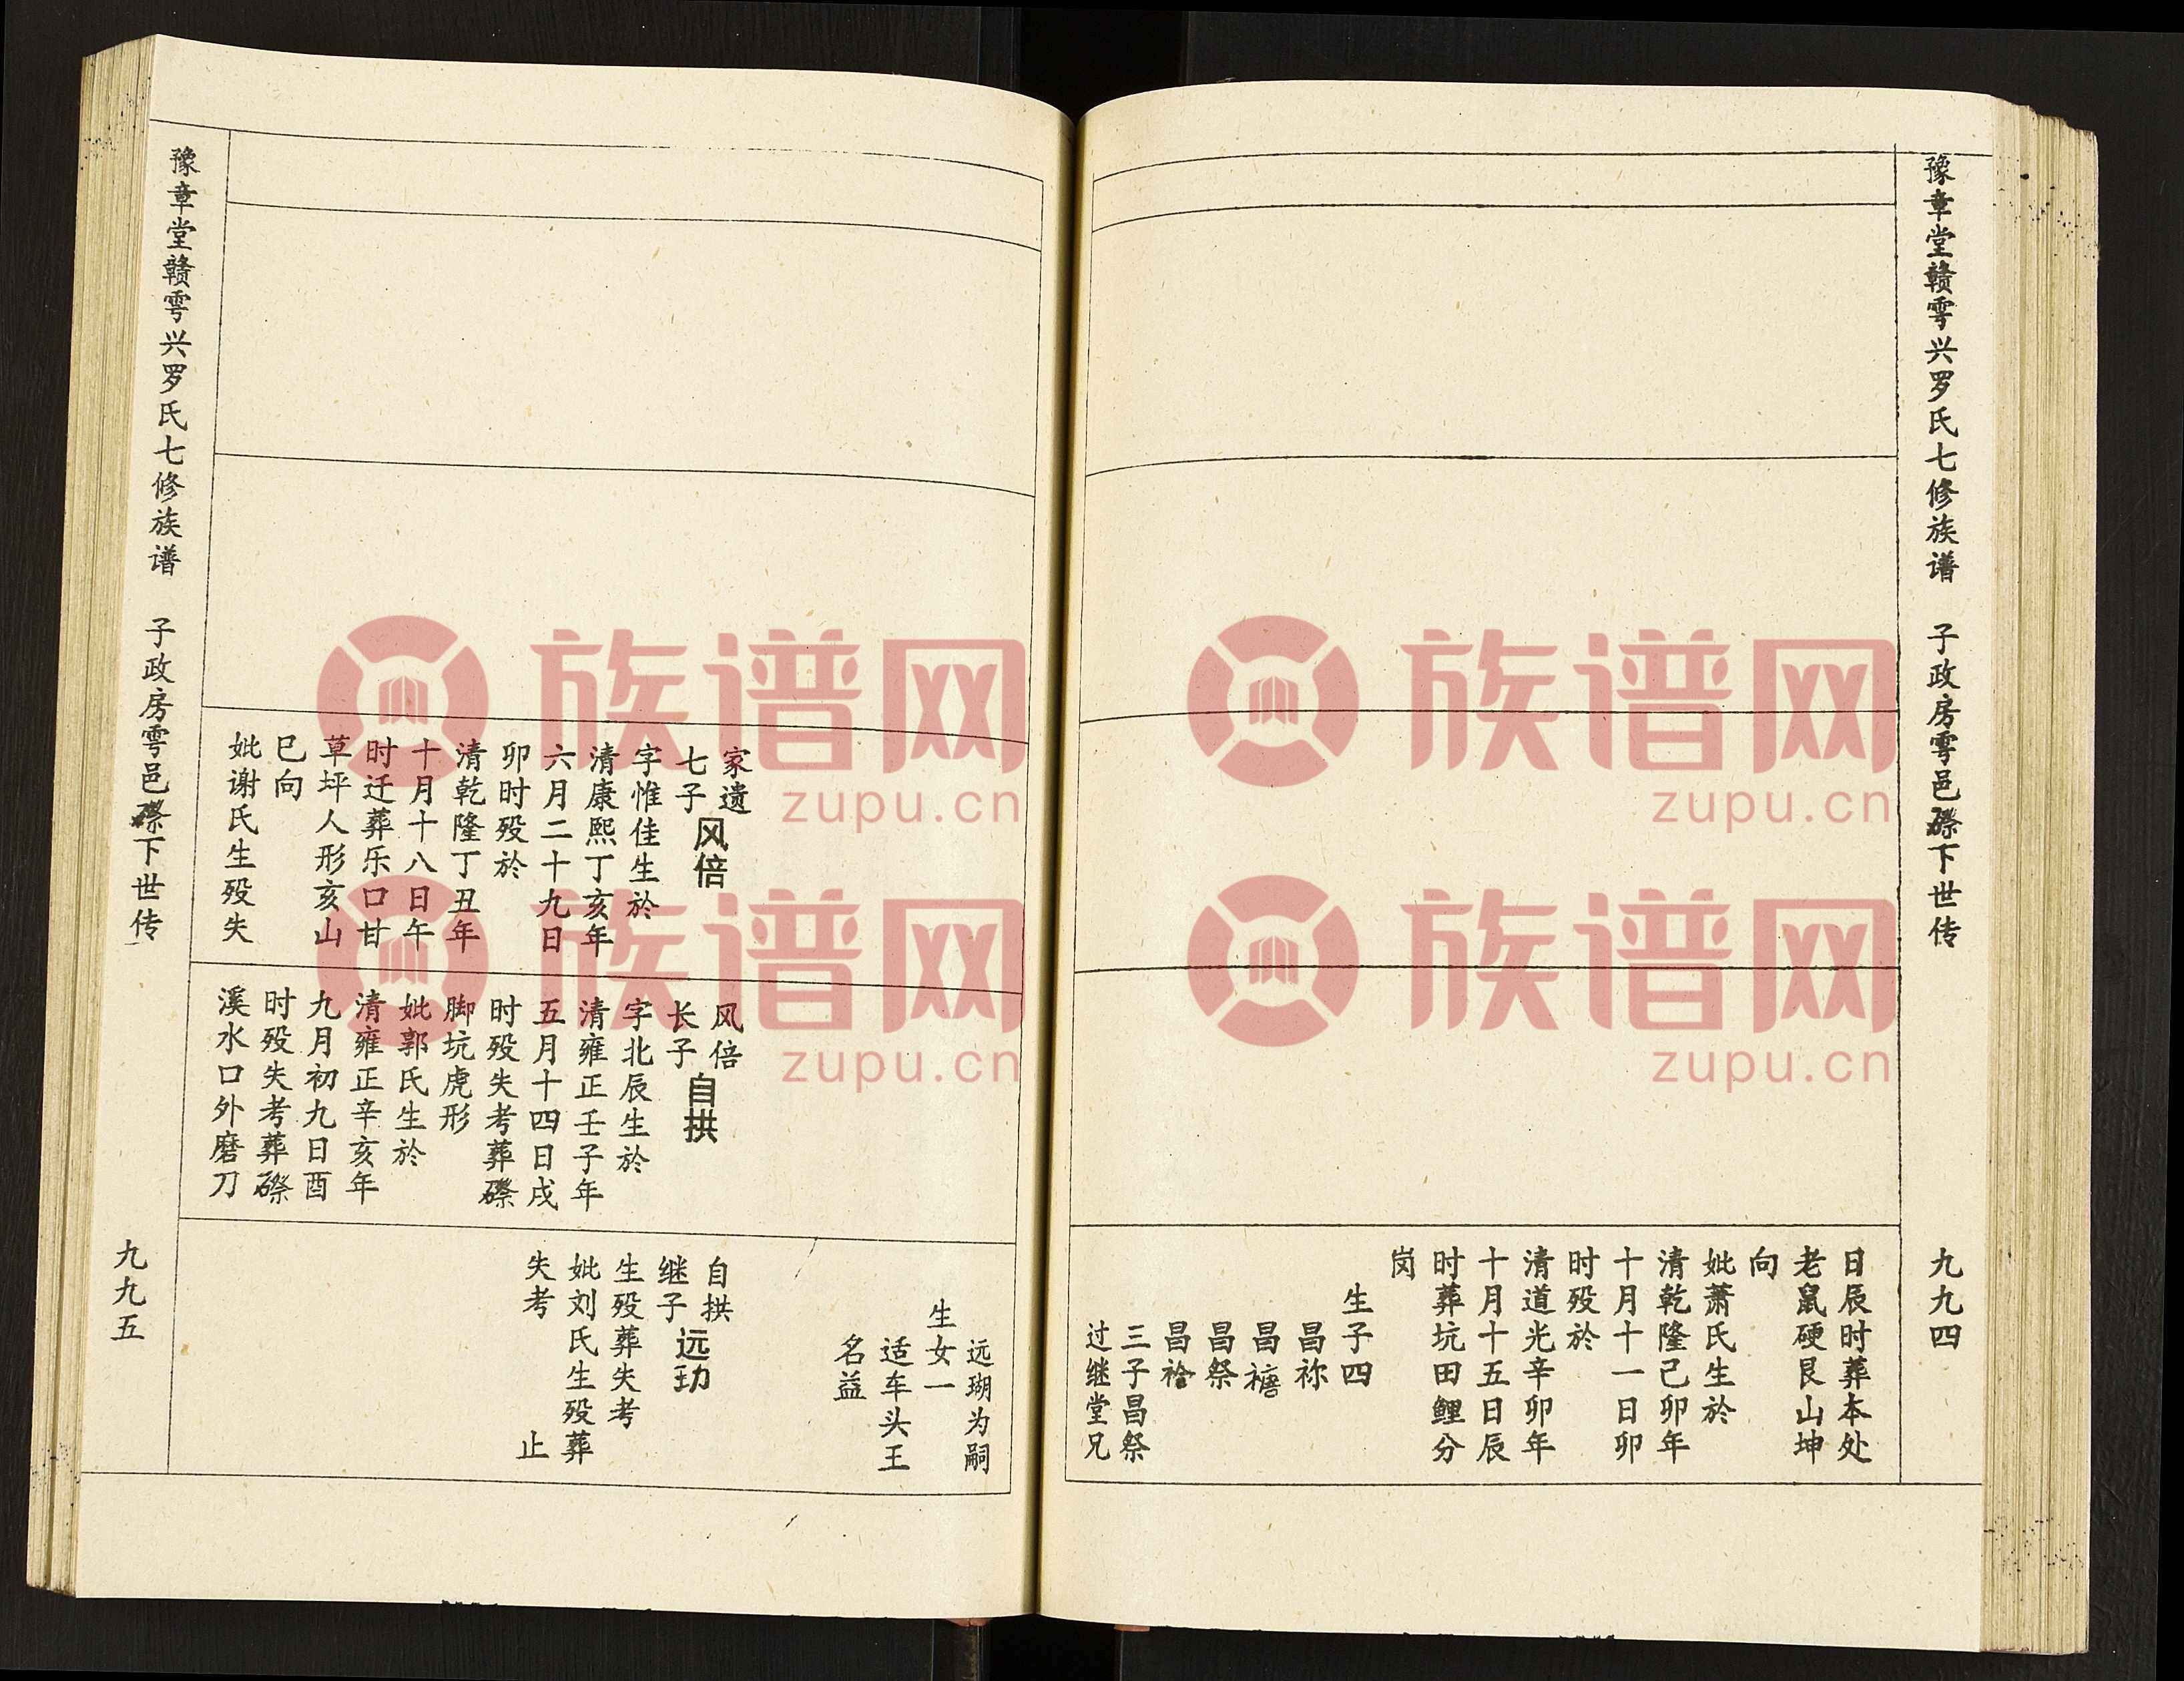 豫章堂赣雩兴罗氏七修族谱 子政房雩邑磜下世传
九九四
日辰时葬本处
老鼠硬艮山坤
向
妣萧氏生於
清乾隆己卯年
十月十一日卯
时殁於
清道光辛卯年
十月十五日辰
时葬坑田鲤分
岗
生子四
昌祢
昌禟
昌祭
昌禬
三子昌祭
过继堂兄
远瑚为嗣
生女一
适车头王
名益
家遗
七子
风倍
字惟佳生於
清康熙丁亥年
六月二十九日
卯时殁於
清乾隆丁丑年
十月十八日午
时迁葬乐口甘
草坪人形亥山
巳向
妣谢氏生殁失
风倍
长子
自拱
字北辰生於
清雍正壬子年
五月十四日戌
时殁失考葬磜
脚坑虎形
妣郭氏生於
清雍正辛亥年
九月初九日酉
时殁失考葬磜
溪水口外磨刀
自拱
继子
远玏
生殁葬失考
妣刘氏生殁葬
失考 止
豫章堂赣雩兴罗氏七修族谱 子政房雩邑磜下世传
九九五
族谱网
zupu.cn
族谱网
zupu.cn
族谱网
zupu.cn
族谱网
zupu.cn